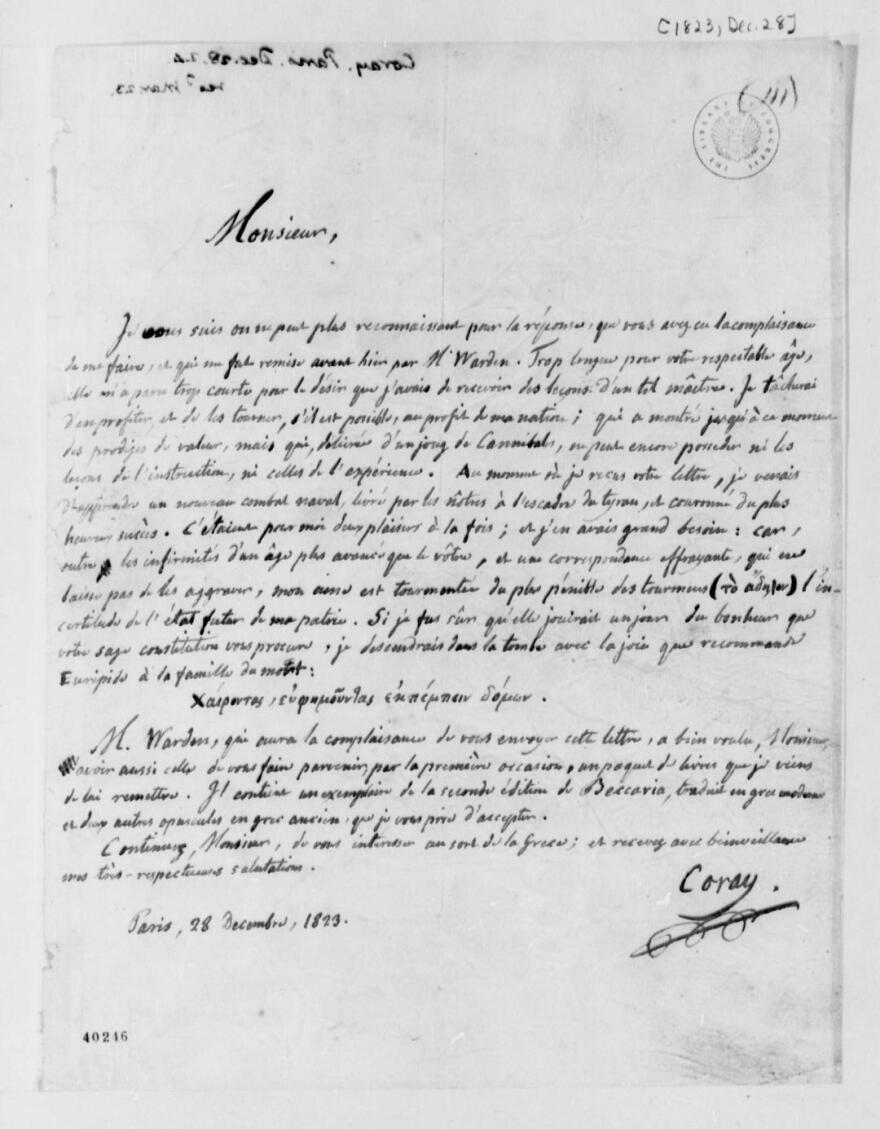 [1823, Dec. 28]
Coray. Paris. Dec. 28. 23.
recd Mar. 23.
(111)
THE LIBRARY OF CONGRESS
Monsieur,
Je vous suis on ne peut plus reconnaissant pour la réponse, que vous avez eu la complaisance
de me faire, et qui me fut remise avant hier par Mr Warden. Trop longue pour votre respectable âge,
elle m'a paru trop courte pour le désir que j'avais de recevoir des leçons d'un tel maître. Je tâcherai
d'en profiter et de les tourner, s'il est possible, au profit de ma nation; qui a montré jusqu'à ce moment
des prodiges de valeur, mais qui, délivrée d'un joug de Cannibals, ne peut encore posséder ni les
leçons de l'instruction, ni celles de l'expérience. Au moment où je reçus votre lettre, je venais
d'apprendre un nouveau combat naval, livré par les nôtres à l'escadre du tyran, et couronné du plus
heureux succès. C'étaient pour moi deux plaisirs à la fois; et j'en avais grand besoin: car,
outre les infirmités d'un âge plus avancé que le vôtre, et une correspondance effrayante, qui ne
laisse pas de les aggraver, mon ame est tourmentée du plus pénible des tourmens (τὸ ἄδηλον) l'in-
certitude de l'état futur de ma patrie. Si je fus sûr qu'elle jouirait un jour du bonheur que
votre sage constitution vous procure, je descendrais dans la tombe avec la joie que recommande
Euripide à la famille du mort:
Χαίροντας, εὐφημοῦντας ἐκπέμπειν δόμων.
M. Warden, qui aura la complaisance de vous envoyer cette lettre, a bien voulu, Monsieur,
avoir aussi celle de vous faire parvenir, par la première occasion, un paquet de livres que je viens
de lui remettre. Il contient un exemplaire de la seconde édition de Beccaria, traduit en grec moderne
et deux autres opuscules en grec ancien, que je vous prie d'accepter.
Continuez, Monsieur, de vous intéresser au sort de la Grèce; et recevez avec bienveillance
mes très-respectueuses salutations.
Coray.
Paris, 28 Decembre, 1823.
40246